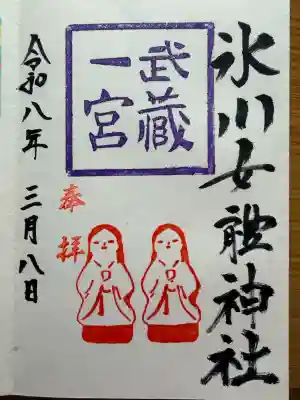 氷川女體神社
武蔵
一宮
奉拝
令和八年 三月八日